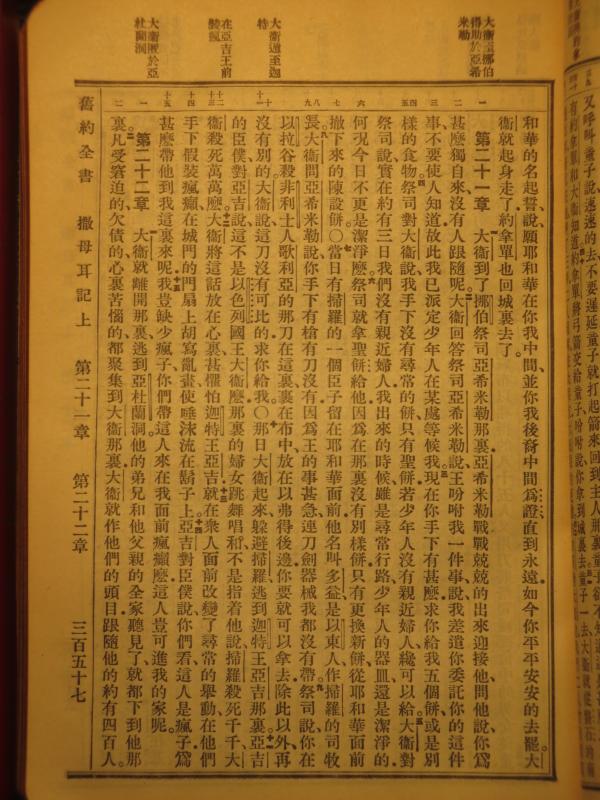 又呼叫童子說速速的去不要遲延童子就打起箭來回到主人
有約拿單和大衛知道約拿單將弓箭交給童子吩咐說你拿到城裏去童子一去大衛就
大衛至挪伯
得助於亞希
米勒
和華的名起誓說願耶和華在你我中間、並你我後裔中間爲證直到永遠如今你平平安安的去罷大
衛就起身走了約拿單也回城裏去了。
一 第二十一章 大衛到了挪伯祭司亞希米勒那裏亞希米勒戰戰兢兢的出來迎接他問他說你爲
二 甚麼獨自來沒有人跟隨呢大衛回答祭司亞希米勒說王吩咐我一件事說我差遣你委託你的這件
三 事不要使人知道故此我已派定少年人在某處等候我現在你手下有甚麼求你給我五個餅或是別
四五 樣的食物祭司對大衛說我手下沒有尋常的餅只有聖餅若少年人沒有親近婦人纔可以給大衛對
祭司說實在約有三日我們沒有親近婦人我出來的時候雖是尋常行路少年人的器皿還是潔淨的
六 何況今日不更是潔淨麼祭司就拿聖餅給他因爲在那裏沒有別樣餅只有更換新餅從耶和華面前
七 撤下來的陳設餅○當日有掃羅的一個臣子留在耶和華面前他名叫多益是以東人作掃羅的司牧
八九 長大衛問亞希米勒說你手下有槍有刀沒有因爲王的事甚急連刀劍器械我都沒有帶祭司說你在
以拉谷殺非利士人歌利亞的那刀在這裏裹在布中、放在以弗得後邊你要就可以拿去除此以外再
大衛遁至迦
特
十十一 沒有別的大衛說這刀沒有可比的求你給我○那日大衛起來躱避掃羅逃到迦特王亞吉那裏亞吉
的臣僕對亞吉說這不是以色列國王大衛麼那裏的婦女跳舞唱和不是指着他說掃羅殺死千千大
在亞吉王前
裝瘋
十二十三 衛殺死萬萬麼大衛將這話放在心裏甚懼怕迦特王亞吉就在衆人面前改變了尋常的舉動在他們
十四 手下假裝瘋癲在城門的門扇上胡寫亂畫使唾沫流在鬍子上亞吉對臣僕說你們看這人是瘋子爲
十五 甚麼帶他到我這裏來呢我豈缺少瘋子你們帶這人來在我面前瘋癲麼這人豈可進我的家呢。
大衛匿於亞
杜蘭洞
一 第二十二章 大衛就離開那裏逃到亞杜蘭洞他的弟兄和他父親的全家聽見了就都下到他那
二 裏凡受窘迫的、欠債的、心裏苦惱的都聚集到大衛那裏大衛就作他們的頭目跟隨他的約有四百人。
舊約全書 撒母耳記上 第二十一章 第二十二章 三百五十七